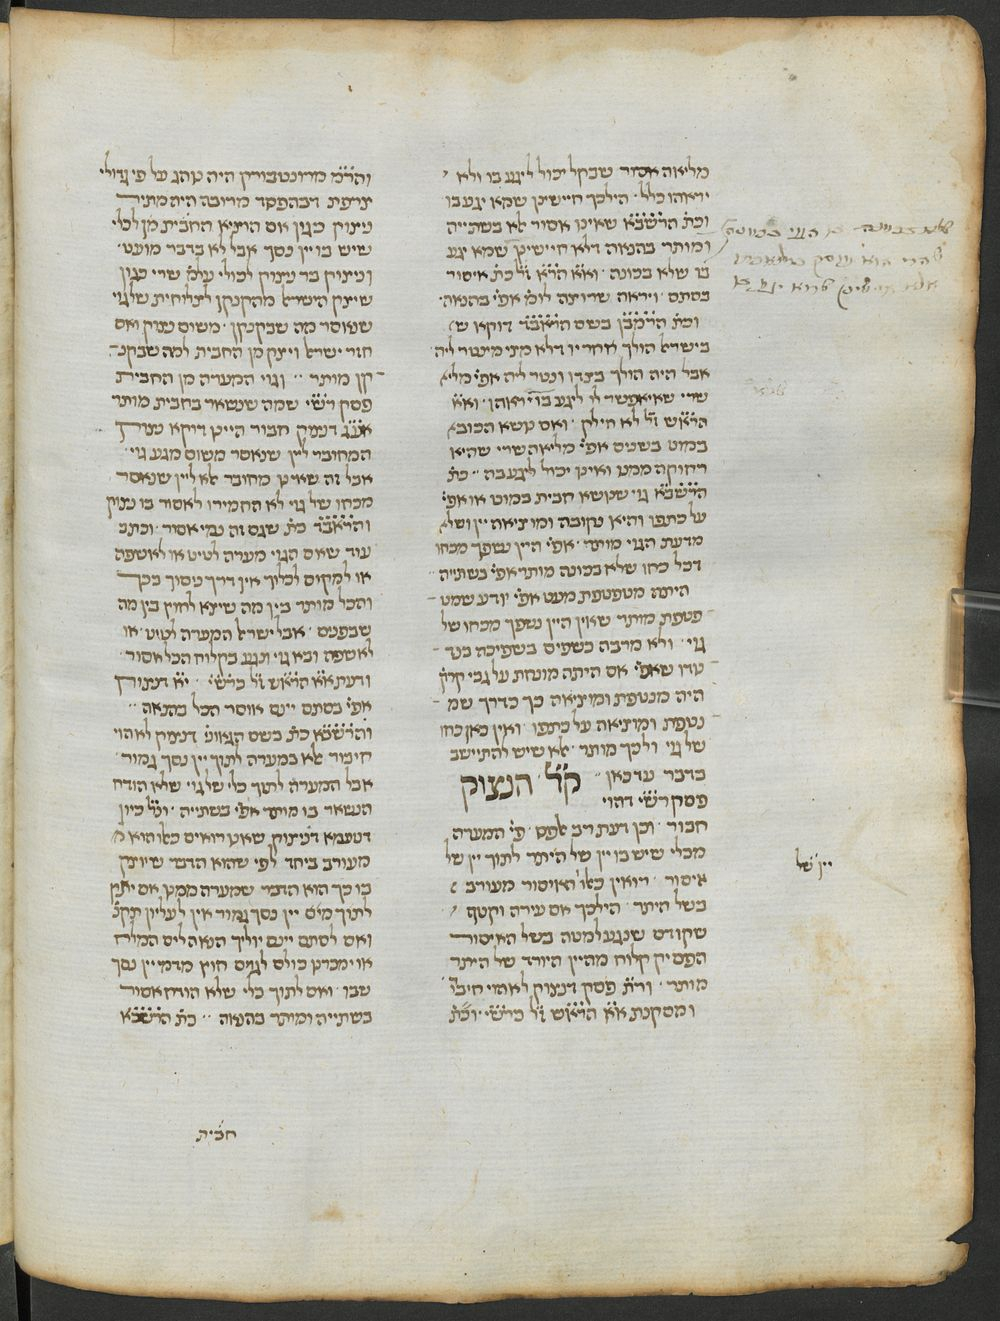 מליאה אסור שבקל יכול ליגע בו ולא
יראהו כלל · הילכך חיישינן שמא יגע בו
וכת׳ הרשב״א שאינו אסור אלא בשתייה
ומותר בהנאה דלא חיישינן שמא יגע
בו שלא בכונה · וא״א הרא״ש ז״ל כת׳ איסור
בסתם · ויראה שרוצה לומ׳ אפי׳ בהנאה ·
וכת׳ הרמב״ן בשם הראב״ד דוקא ש
בישראל הולך אחריו דלא מצי מינטר ליה
אבל היה הולך בצדו ונטר ליה אפי׳ מליא
שרי שאיאפשר לו ליגע בו ויראהו · וא״א
הרא״ש ז״ל לא חילק · ואם נושא הכובא
במוט בשנים אפי׳ מליאה שרי שהיא
רחוקה ממנו ואינו יכול ליגע בה · כת׳
הרשב״א גוי שנושא חבית במוט או אפי׳
על כתפו והיא נקובה ומוציאה יין ושלא
מדעת הגוי מותר · אפי׳ היין נשפך מכחו
דכל כחו שלא בכונה מותר אפי׳ בשתייה ·
היתה מטפטפת מעט אפי׳ יודע שמט
פטפת מותר שאין היין נשפך מכחו של
גוי · ולא מרבה כשפים בשפיכה בנד
נודו שאפי׳ אם היתה מונחת על גבי קרקע
היה מנטפת ומוציאה כך כדרך שמ
נטפת ומוציאה על כתפו · ואין כאן כחו
של גוי ולכך מותר · אלא שיש להתיישב
בדבר עד כאן · קל הנצוק
פסק רש״י דהוי
חבור · וכן דעת רב אלפס · פי׳ המערה
מכלי שיש בו יין של היתר לתוך יין של
איסור · רואין כאלו האיסור מעורב
בשל היתר · הילכך אם עירה וקטף
שקודם שנגע למטה בשל האיסור
הפסיק קלוח מהיין היורד של היתר
מותר · ור״ת פסק דנצוק לא הוי חיבו׳
ומסקנת א״א הרא״ש ז״ל כרש״י · וכת׳
והר״מ מרוטנבורק היה נוהג על פי גדולי
צרפת דבהפסד מרובה היה מתיר
ניצוק כגון אם הוציא החבית מן לכלי
שיש בו יין נסך אבל לא בדבר מועט ·
וניצוק בר נצוק לכולי עלמ׳ שרי כגון
שיצק הישראל מהקנקן לצלוחית של גוי
שנאסר מה שבקנקן · משום נצוק ואם
חזר ישראל ויצק מן החבית למה שבקנ
קן מותר · וגוי המערה מן החבית
פסק רש״י שמה שנשאר בחבית מותר
אע״ג דנצוק חבור היינו דוקא נצוק
המחובר ליין שנאסר משום מגע גוי ·
אבל זה שאינו מחובר אלא ליין שנאסר
מכחו של גוי לא החמירו לאסור בו נצוק
והראב״ד כת׳ שגם זה נמי אסור · וכתב
עוד שאם הגוי מערה לטיט או לאשפה
או למקום לכלוך אין דרך ניסוך בכך
והכל מותר בין מה שיצא לחוץ בין מה
שבפנים · אבל ישראל המערה לטיט · או
לאשפה ובא גוי ונגע בקלוח הכל אסור ·
ודעת א״א הרא״ש ז״ל כרש״י · י״א דנצוק
אפי׳ בסתם יינם אוסר הכל בהנאה ·
והרשב״א כת׳ בשם הגאוני׳ דנצוק לא הוי
חיבור אלא במערה לתוך יין נסך גמור ·
אבל המערה לתוך כלי של גוי שלא הודח
הנשאר בו מותר אפי׳ בשתייה · ונ״ל כיון
דטעמא דניצוק שאנו רואים כאלו הוא
מעורב ביחד לפי שהוא הדבר שיוצק
בו כך הוא הדבר שמערה ממנו אם יתק
לתוך מים יין נסך גמור אין לעליון תקנ׳
ואם לסתם יינם יוליך הנאה לים המלח
או ימכרנו כולו לגוים חוץ מדמי יין נסך
שבו · ואם לתוך כלי שלא הודח אסור
בשתייה ומותר בהנאה · כת׳ הרשב״א
יין של
חבית